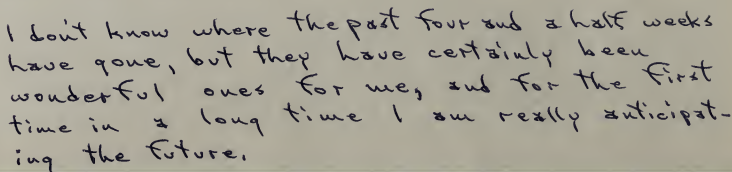 I don't know where the past four and a half weeks
have gone, but they have certainly been
wonderful ones for me, and for the first
time in a long time I am really anticipat-
ing the future.